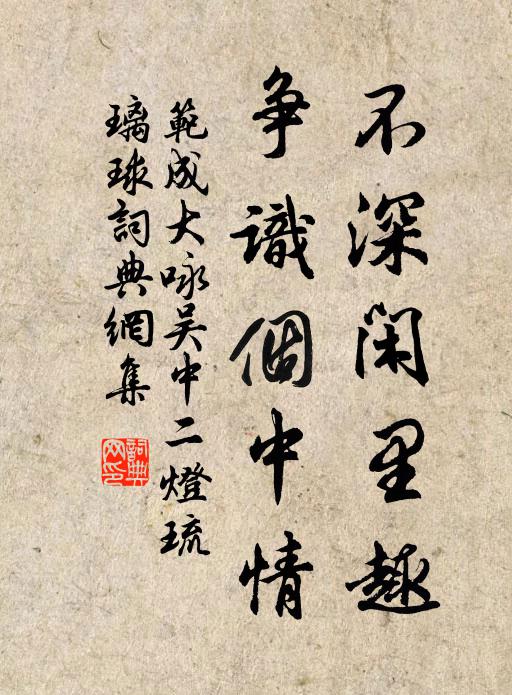 不深閑里趣
爭識個中情
範成大咏吴中二燈琉
璃球詞典網集
詞典网印